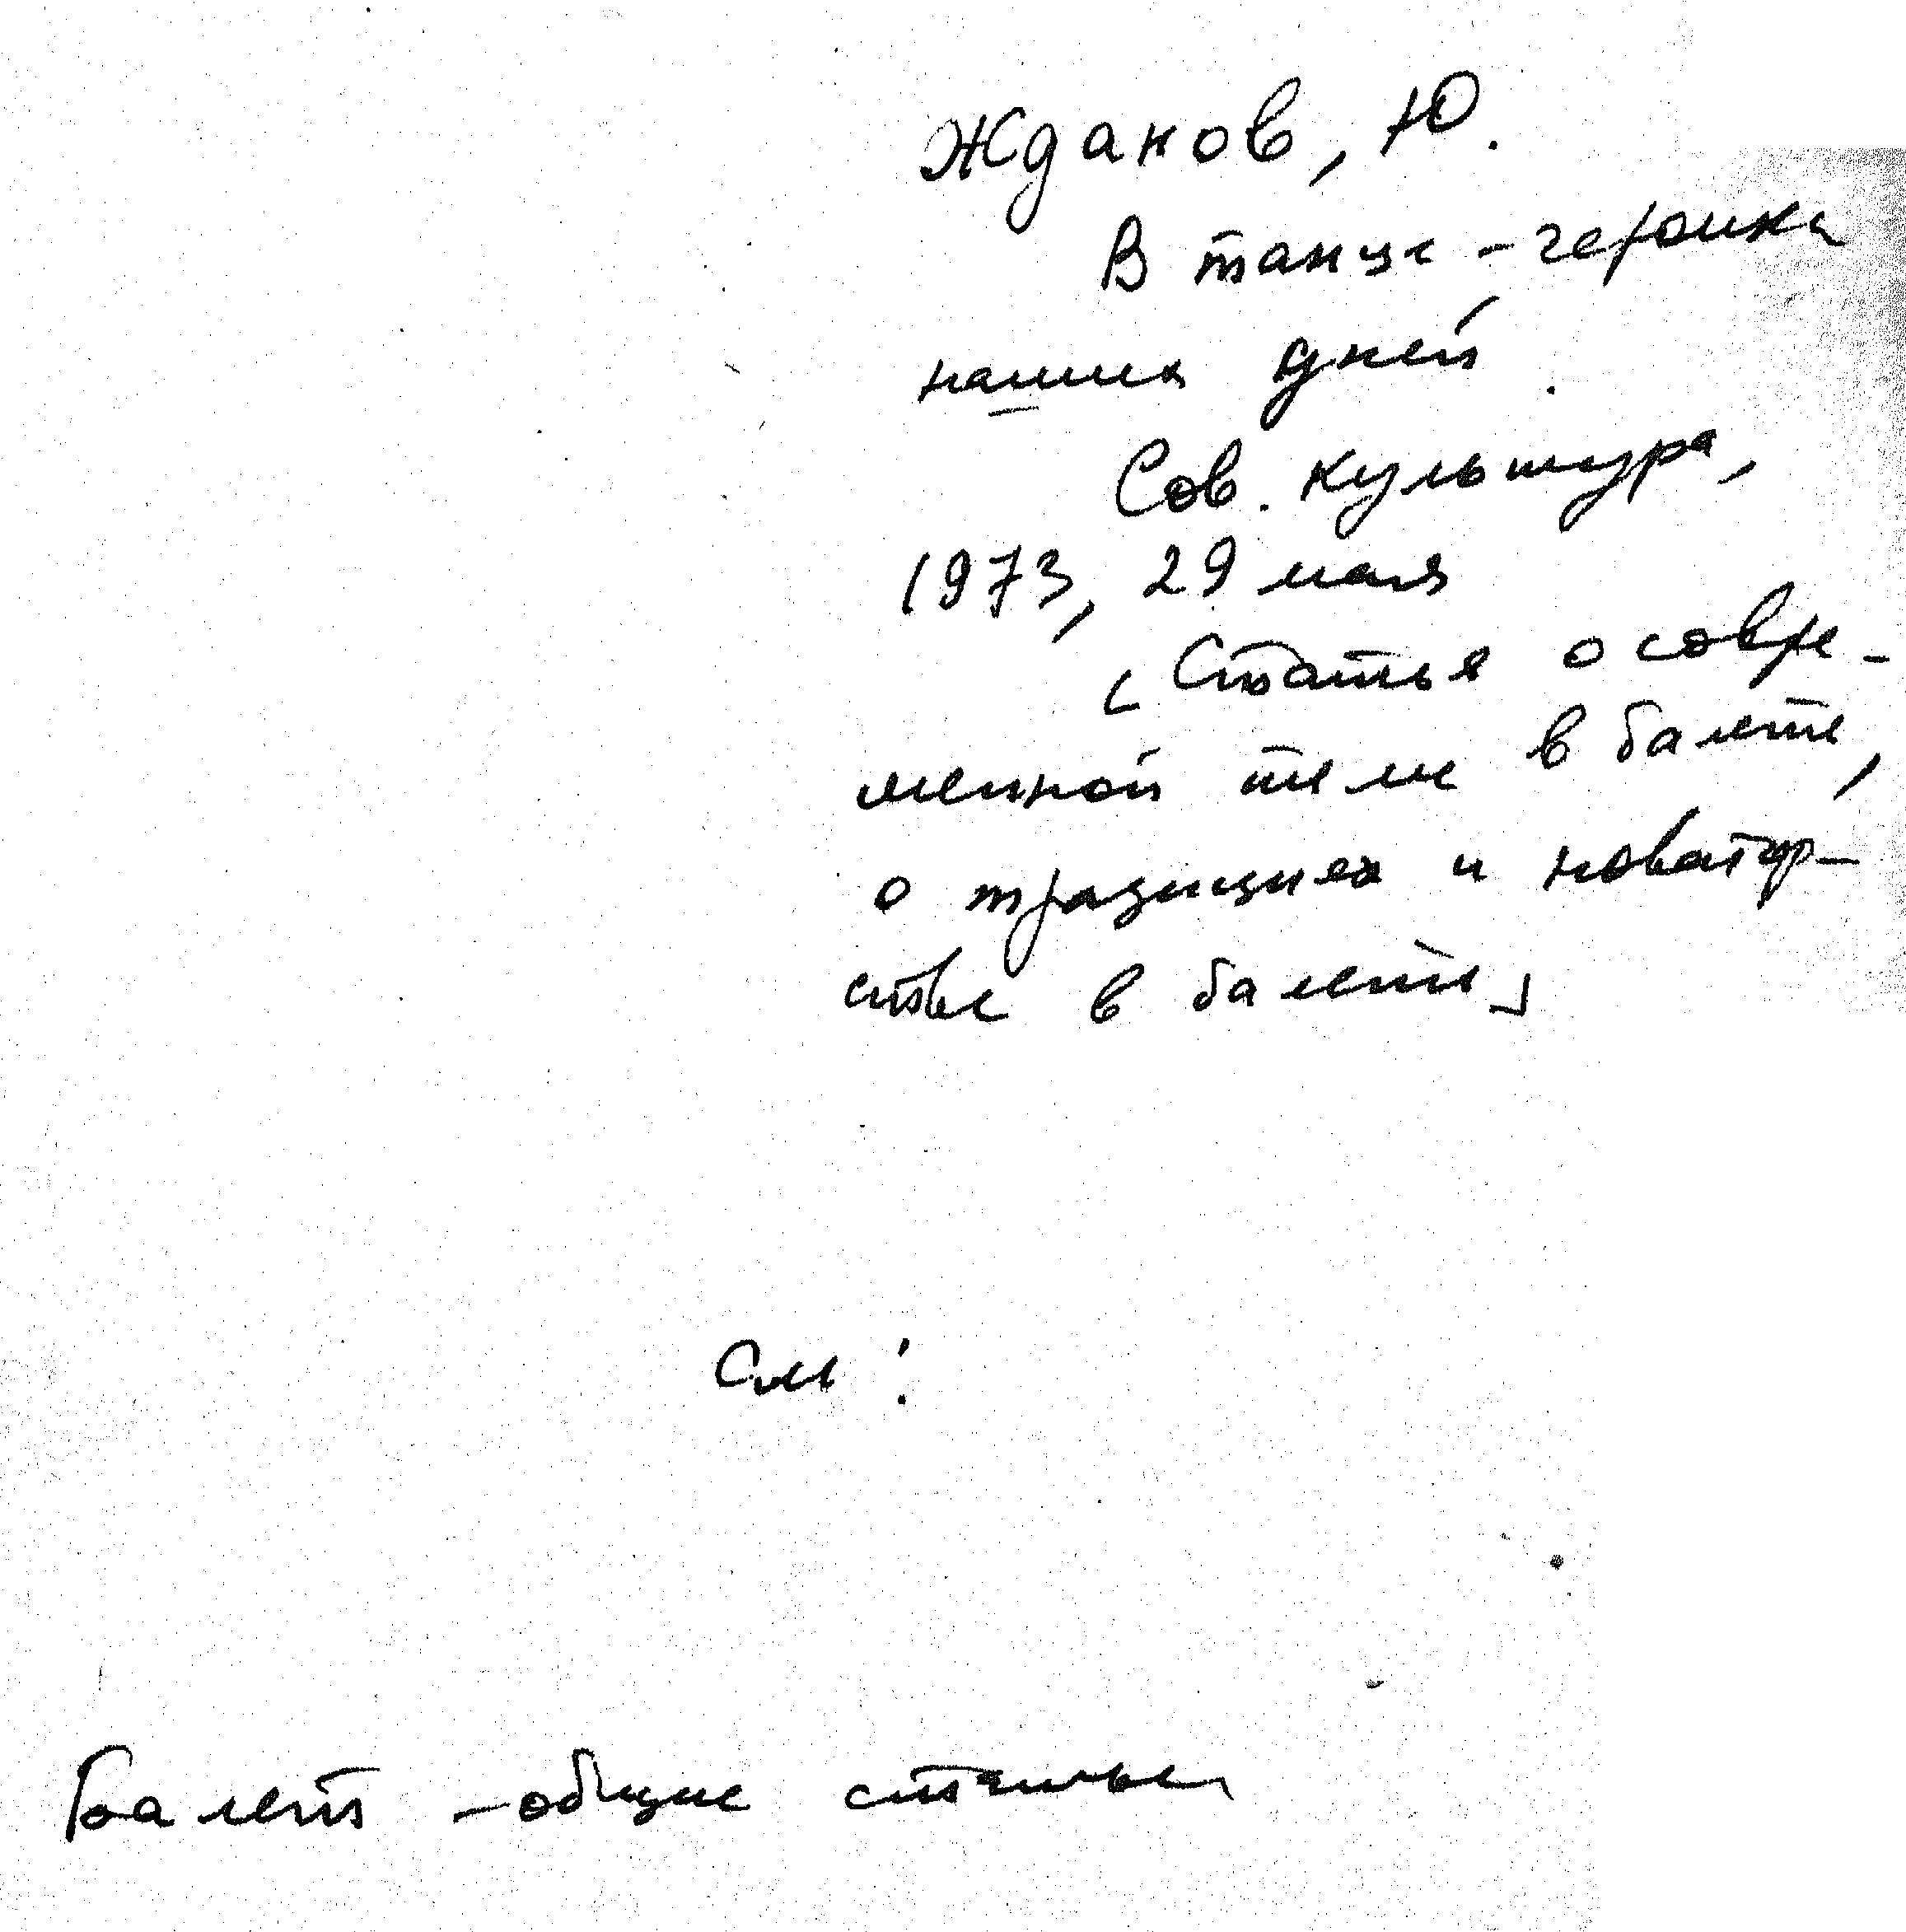 Жданов, Ю.
В танце - героика
наших дней.
Сов. культура,
1973, 29 мая
[Статья о совре-
менной теме в балете,
о традициях и новатор-
стве в балете]
См:
Балет - общие статьи